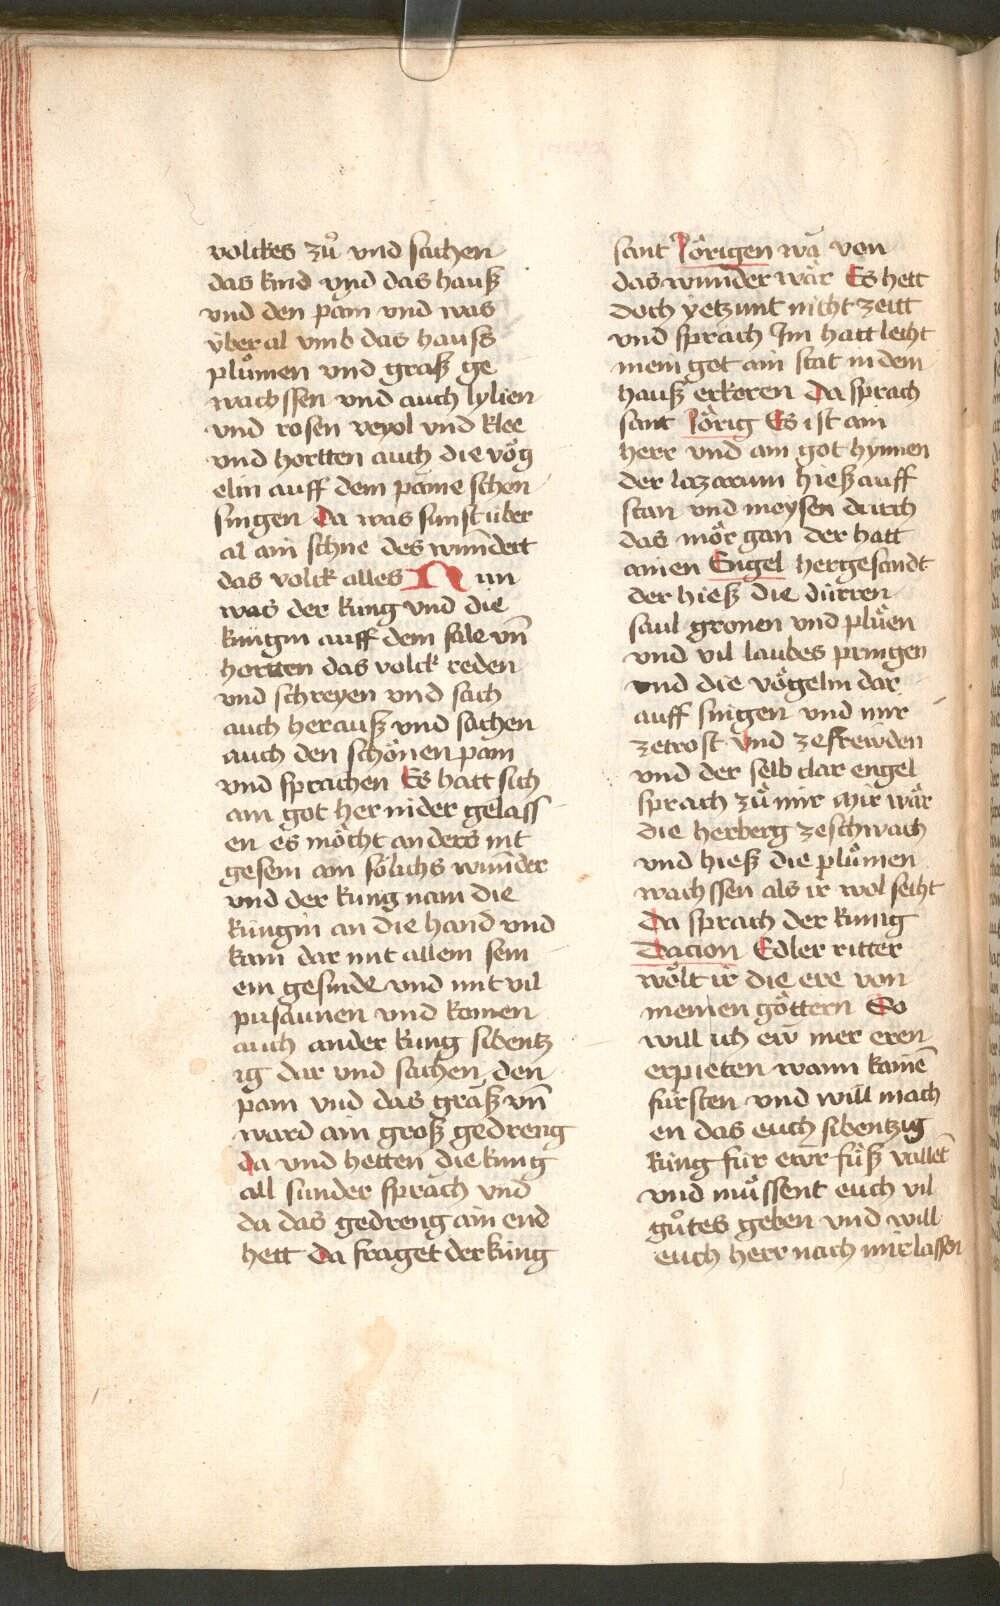 volckes zů vnd sachen
das kind vnd das hauß
vnd den pam vnd was
v̈ber al vmb das hauss
plůmen vnd graß ge
wachssen vnd auch lylien
vnd rosen veyol vnd klee
vnd hortten auch die vög
elin auff dem pame schon
singen Da was sunst über
al ain schne des wundert
das volck alles Nun
was der küng vnd die
küngin auff dem sale vn̄
hortten das volck reden
vnd schreyen vnd sach
auch herauß vnd sachen
auch den schönen pam
vnd sprachen Es hatt sich
ain got her nider gelass
en es möcht anders nit
gesein ain sölichs wunder
vnd der küng nam die
küngin an die hand vnd
kam dar mit allem sein
em gesinde vnd mit vil
pusaunen vnd komen
auch ander küng sibentz
ig dar vnd sachen den
pam vnd das graß vn̄
ward ain groß gedreng
da vnd hetten die küng
all sunder sprach vnd
da das gedreng ain end
hett Da fraget der küng
sant Jörigen wā von
das wunder wär Es hett
doch yetzunt nicht zeitt
vnd sprach Im hatt leicht
mein got ain stat in dem
hauß erkoren Da sprach
sant Jörig Es ist ain
herr vnd ain got hymen
der lazarum hieß auff
stan vnd moysen durch
das mör gan der hatt
ainen Engel hergesandt
der hieß die dürren
saul gronen vnd plüen
vnd vil laubes pringen
vnd die vögelin dar
auff singen vnd mir
zetrost vnd zefrewden
vnd der selb clar engel
sprach zů mir mir wär
die herberg zeschwach
vnd hieß die plůmen
wachssen als ir wol secht
Da sprach der künig
Dacion Edler ritter
wölt ir die ere von
meinen göttern So
will ich ew̄ mer eren
erpieten wann kainē
fürsten vnd will mach
en das euch sibentzig
küng für ewr füß vallet̄
vnd müssent euch vil
gůtes geben vnd will
euch herr nach mir lassen